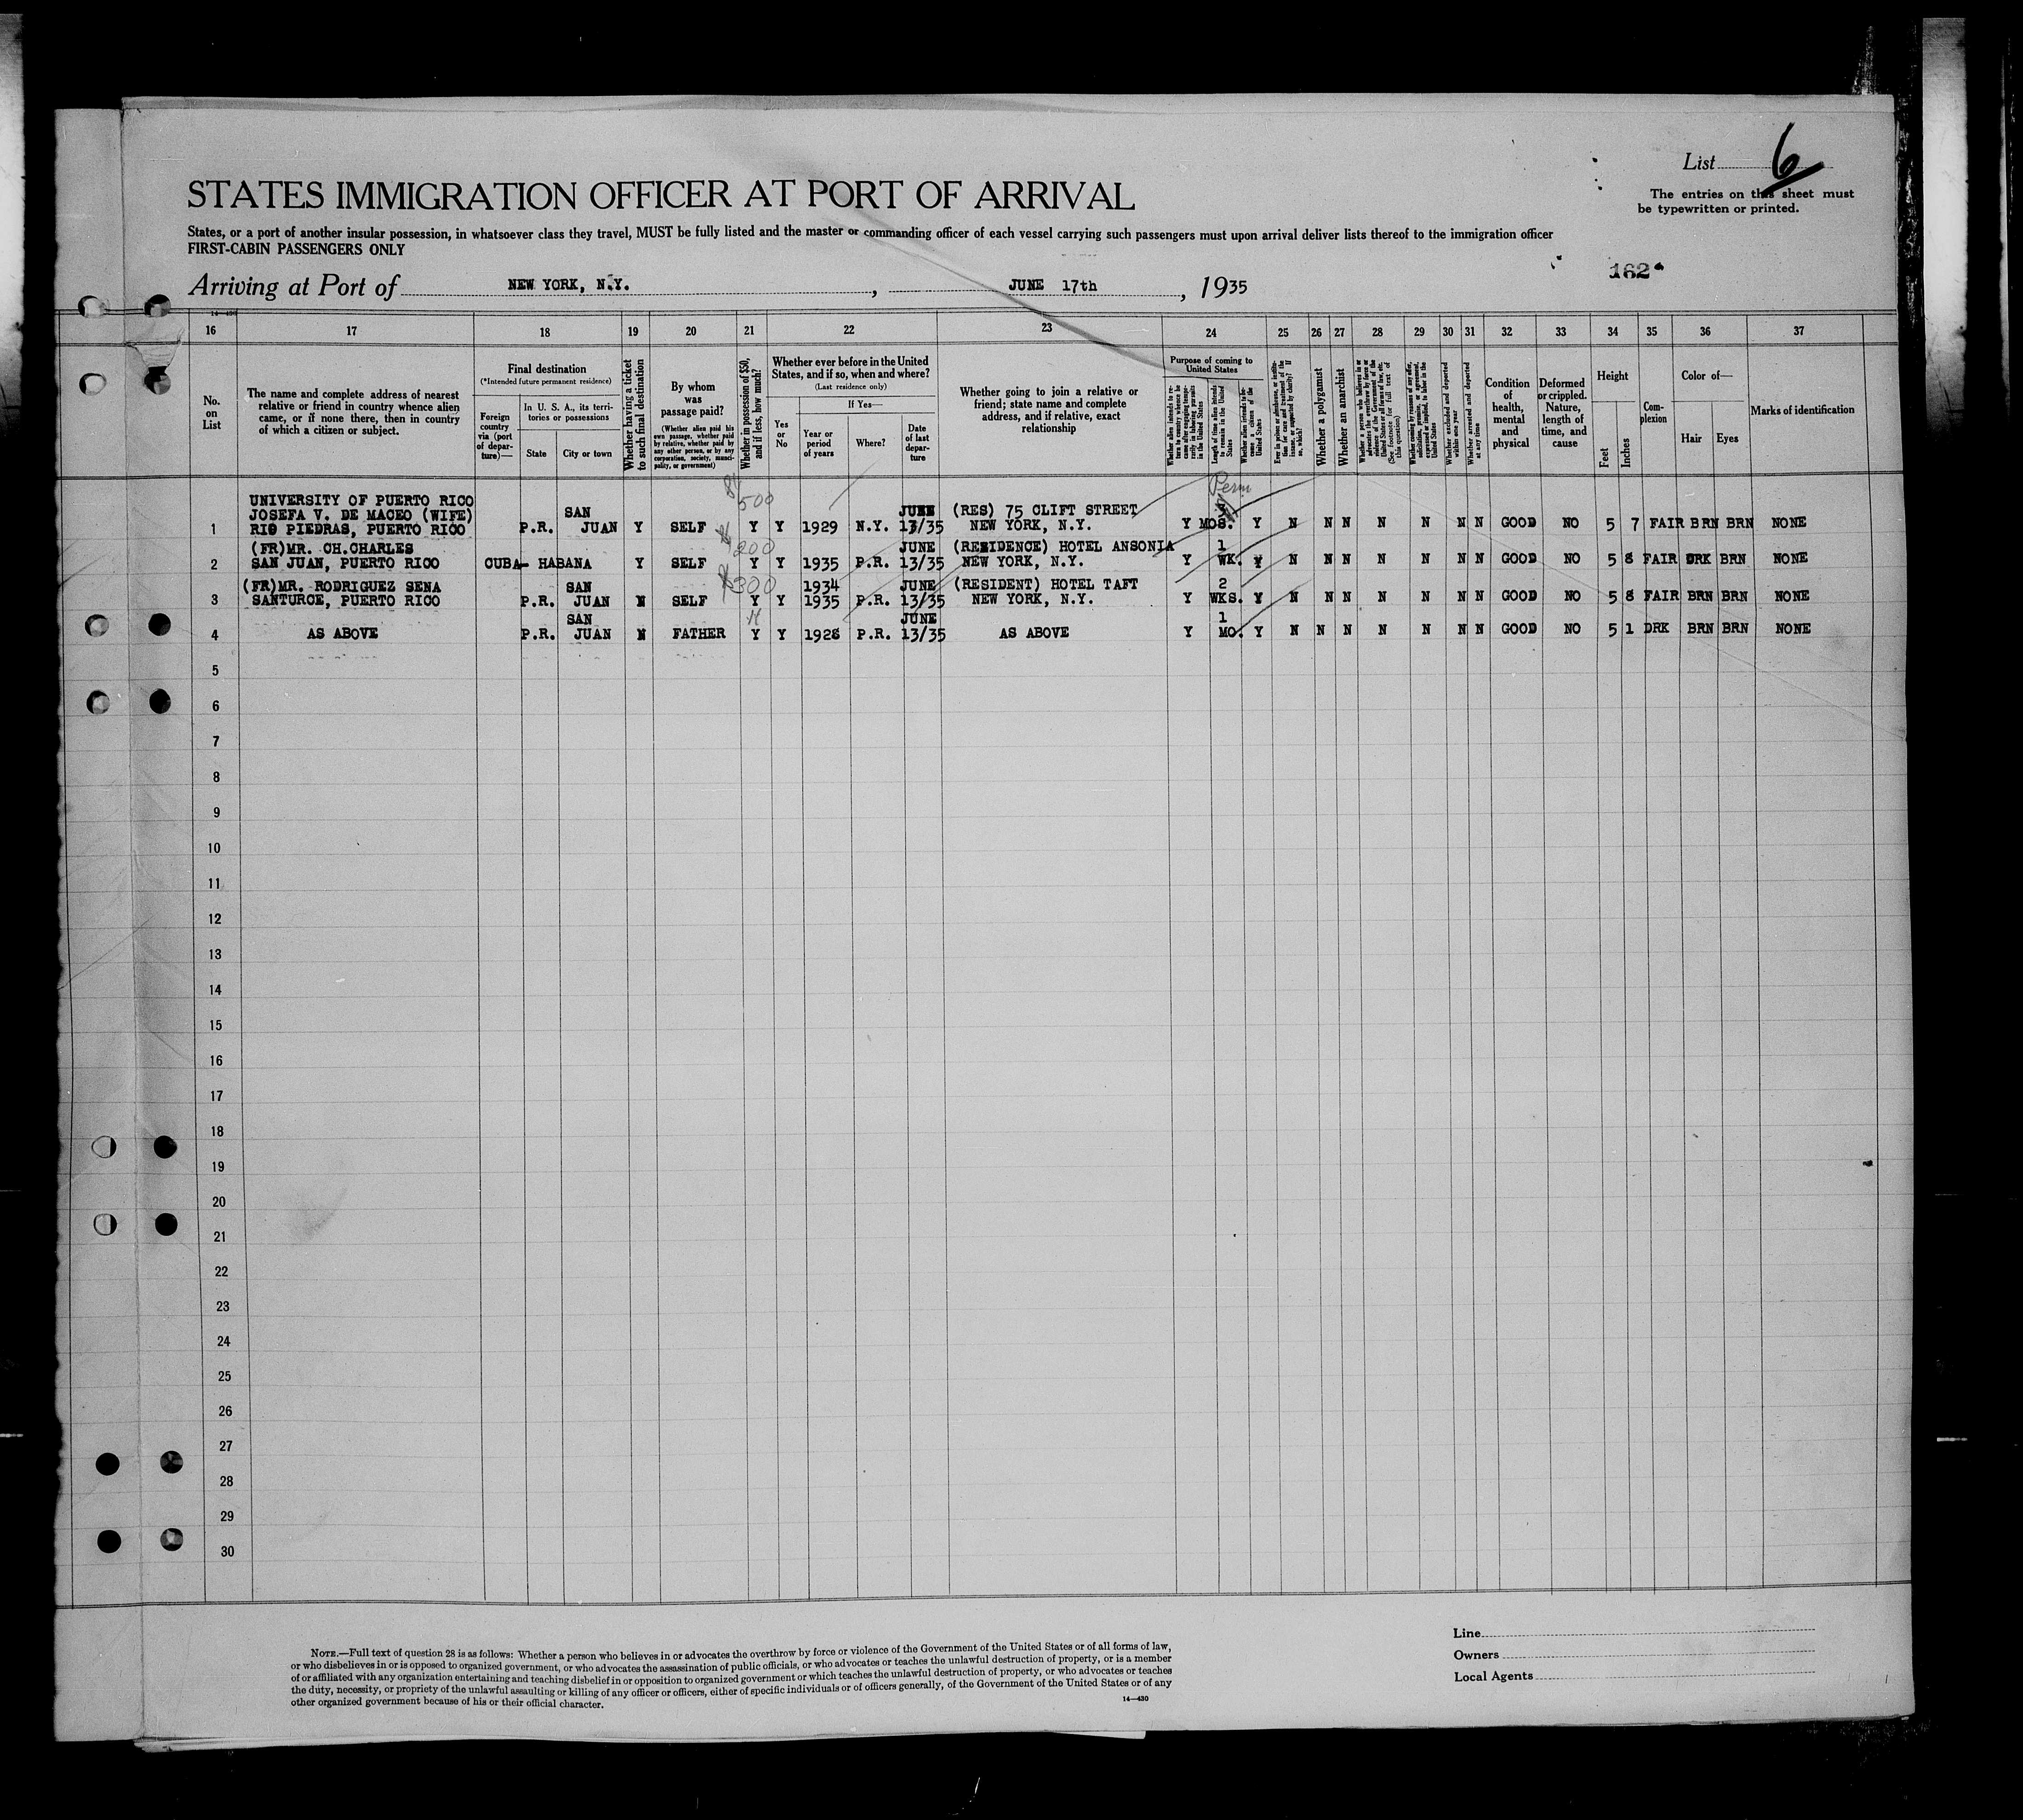 List 6
The entries on this sheet must
be typewritten or printed.
STATES IMMIGRATION OFFICER AT PORT OF ARRIVAL
States, or a port of another insular possession, in whatsoever class they travel, MUST be fully listed and the master or commanding officer of each vessel carrying such passengers must upon arrival deliver lists thereof to the immigration officer
FIRST-CABIN PASSENGERS ONLY
162
Arriving at Port of NEW YORK, N.Y. , JUNE 17th , 1935
14—430
16 17 18 19 20 21 22 23 24 25 26 27 28 29 30 31 32 33 34 35 36 37
No. on List
The name and complete address of nearest
relative or friend in country whence alien
came, or if none there, then in country
of which a citizen or subject.
Final destination
(*Intended future permanent residence)
Foreign country via (port of departure)—
In U. S. A., its territories or possessions
State
City or town
Whether having a ticket to such final destination
By whom was passage paid?
(Whether alien paid his own passage, whether paid by relative, whether paid by any other person, or by any corporation, society, municipality, or government)
Whether in possession of $50, and if less, how much?
Whether ever before in the United States, and if so, when and where?
(Last residence only)
Yes or No
If Yes—
Year or period of years
Where?
Date of last departure
Whether going to join a relative or
friend; state name and complete
address, and if relative, exact
relationship
Purpose of coming to United States
Whether alien intends to return to country whence he came after engaging temporarily in laboring pursuits in the United States
Length of time alien intends to remain in the United States
Whether alien intends to become a citizen of the United States
Ever in prison or almshouse, or institution for care and treatment of the insane, or supported by charity? If so, which?
Whether a polygamist
Whether an anarchist
Whether a person who believes in or advocates the overthrow by force or violence of the Government of the United States or all forms of law, etc. (See footnote for full text of this question)
Whether coming by reason of any offer, solicitation, promise, or agreement, expressed or implied, to labor in the United States
Whether excluded and deported within one year
Whether arrested and deported at any time
Condition of health, mental and physical
Deformed or crippled. Nature, length of time, and cause
Height
Feet
Inches
Complexion
Color of—
Hair
Eyes
Marks of identification
UNIVERSITY OF PUERTO RICO $500 Perm
JOSEFA V. DE MACEO (WIFE) SAN JUNE (RES) 75 CLIFT STREET 3
1 RIO PIEDRAS, PUERTO RICO P.R. JUAN Y SELF Y Y 1929 N.Y. 13/35 NEW YORK, N.Y. Y MOS. Y N N N N N N N GOOD NO 5 7 FAIR BRN BRN NONE
(FR)MR. CH.CHARLES $200 JUNE (RESIDENCE) HOTEL ANSONIA 1
2 SAN JUAN, PUERTO RICO CUBA- HABANA Y SELF Y Y 1935 P.R. 13/35 NEW YORK, N.Y. Y WK. Y N N N N N N N GOOD NO 5 8 FAIR DRK BRN NONE
(FR)MR. RODRIGUEZ SENA SAN $300 1934 JUNE (RESIDENT) HOTEL TAFT 2
3 SANTURCE, PUERTO RICO P.R. JUAN N SELF Y Y 1935 P.R. 13/35 NEW YORK, N.Y. Y WKS. Y N N N N N N N GOOD NO 5 8 FAIR BRN BRN NONE
SAN JUNE 1
4 AS ABOVE P.R. JUAN N FATHER Y Y 1928 P.R. 13/35 AS ABOVE Y MO. Y N N N N N N N GOOD NO 5 1 DRK BRN BRN NONE
5
6
7
8
9
10
11
12
13
14
15
16
17
18
19
20
21
22
23
24
25
26
27
28
29
30
NOTE.—Full text of question 28 is as follows: Whether a person who believes in or advocates the overthrow by force or violence of the Government of the United States or of all forms of law,
or who disbelieves in or is opposed to organized government, or who advocates the assassination of public officials, or who advocates or teaches the unlawful destruction of property, or is a member
of or affiliated with any organization entertaining and teaching disbelief in or opposition to organized government or which teaches the unlawful destruction of property, or who advocates or teaches
the duty, necessity, or propriety of the unlawful assaulting or killing of any officer or officers, either of specific individuals or of officers generally, of the Government of the United States or of any
other organized government because of his or their official character.
14—430
Line
Owners
Local Agents